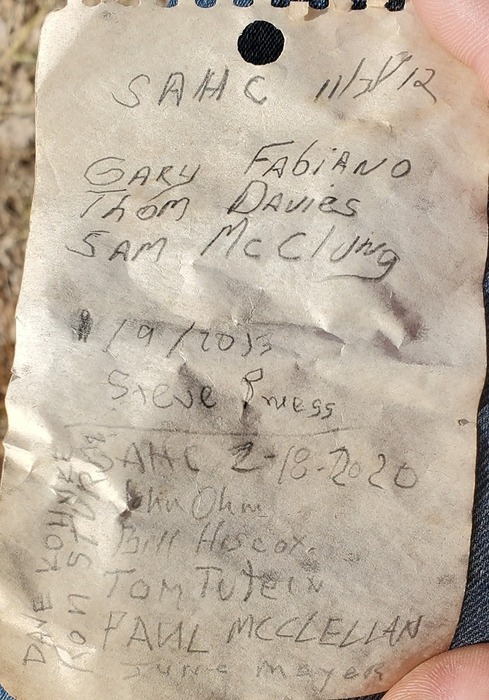 SAHC
GARY FAbiANO
Thom DAVies
SAM McClung
/9/2013
Steve Pruess
SAHC 2-18-2020
John Ohm
Bill Hiscox.
Tom Tutein
PAUL MCCLELLAN
June Mayer
DAVE KOHNKE
RON STURM